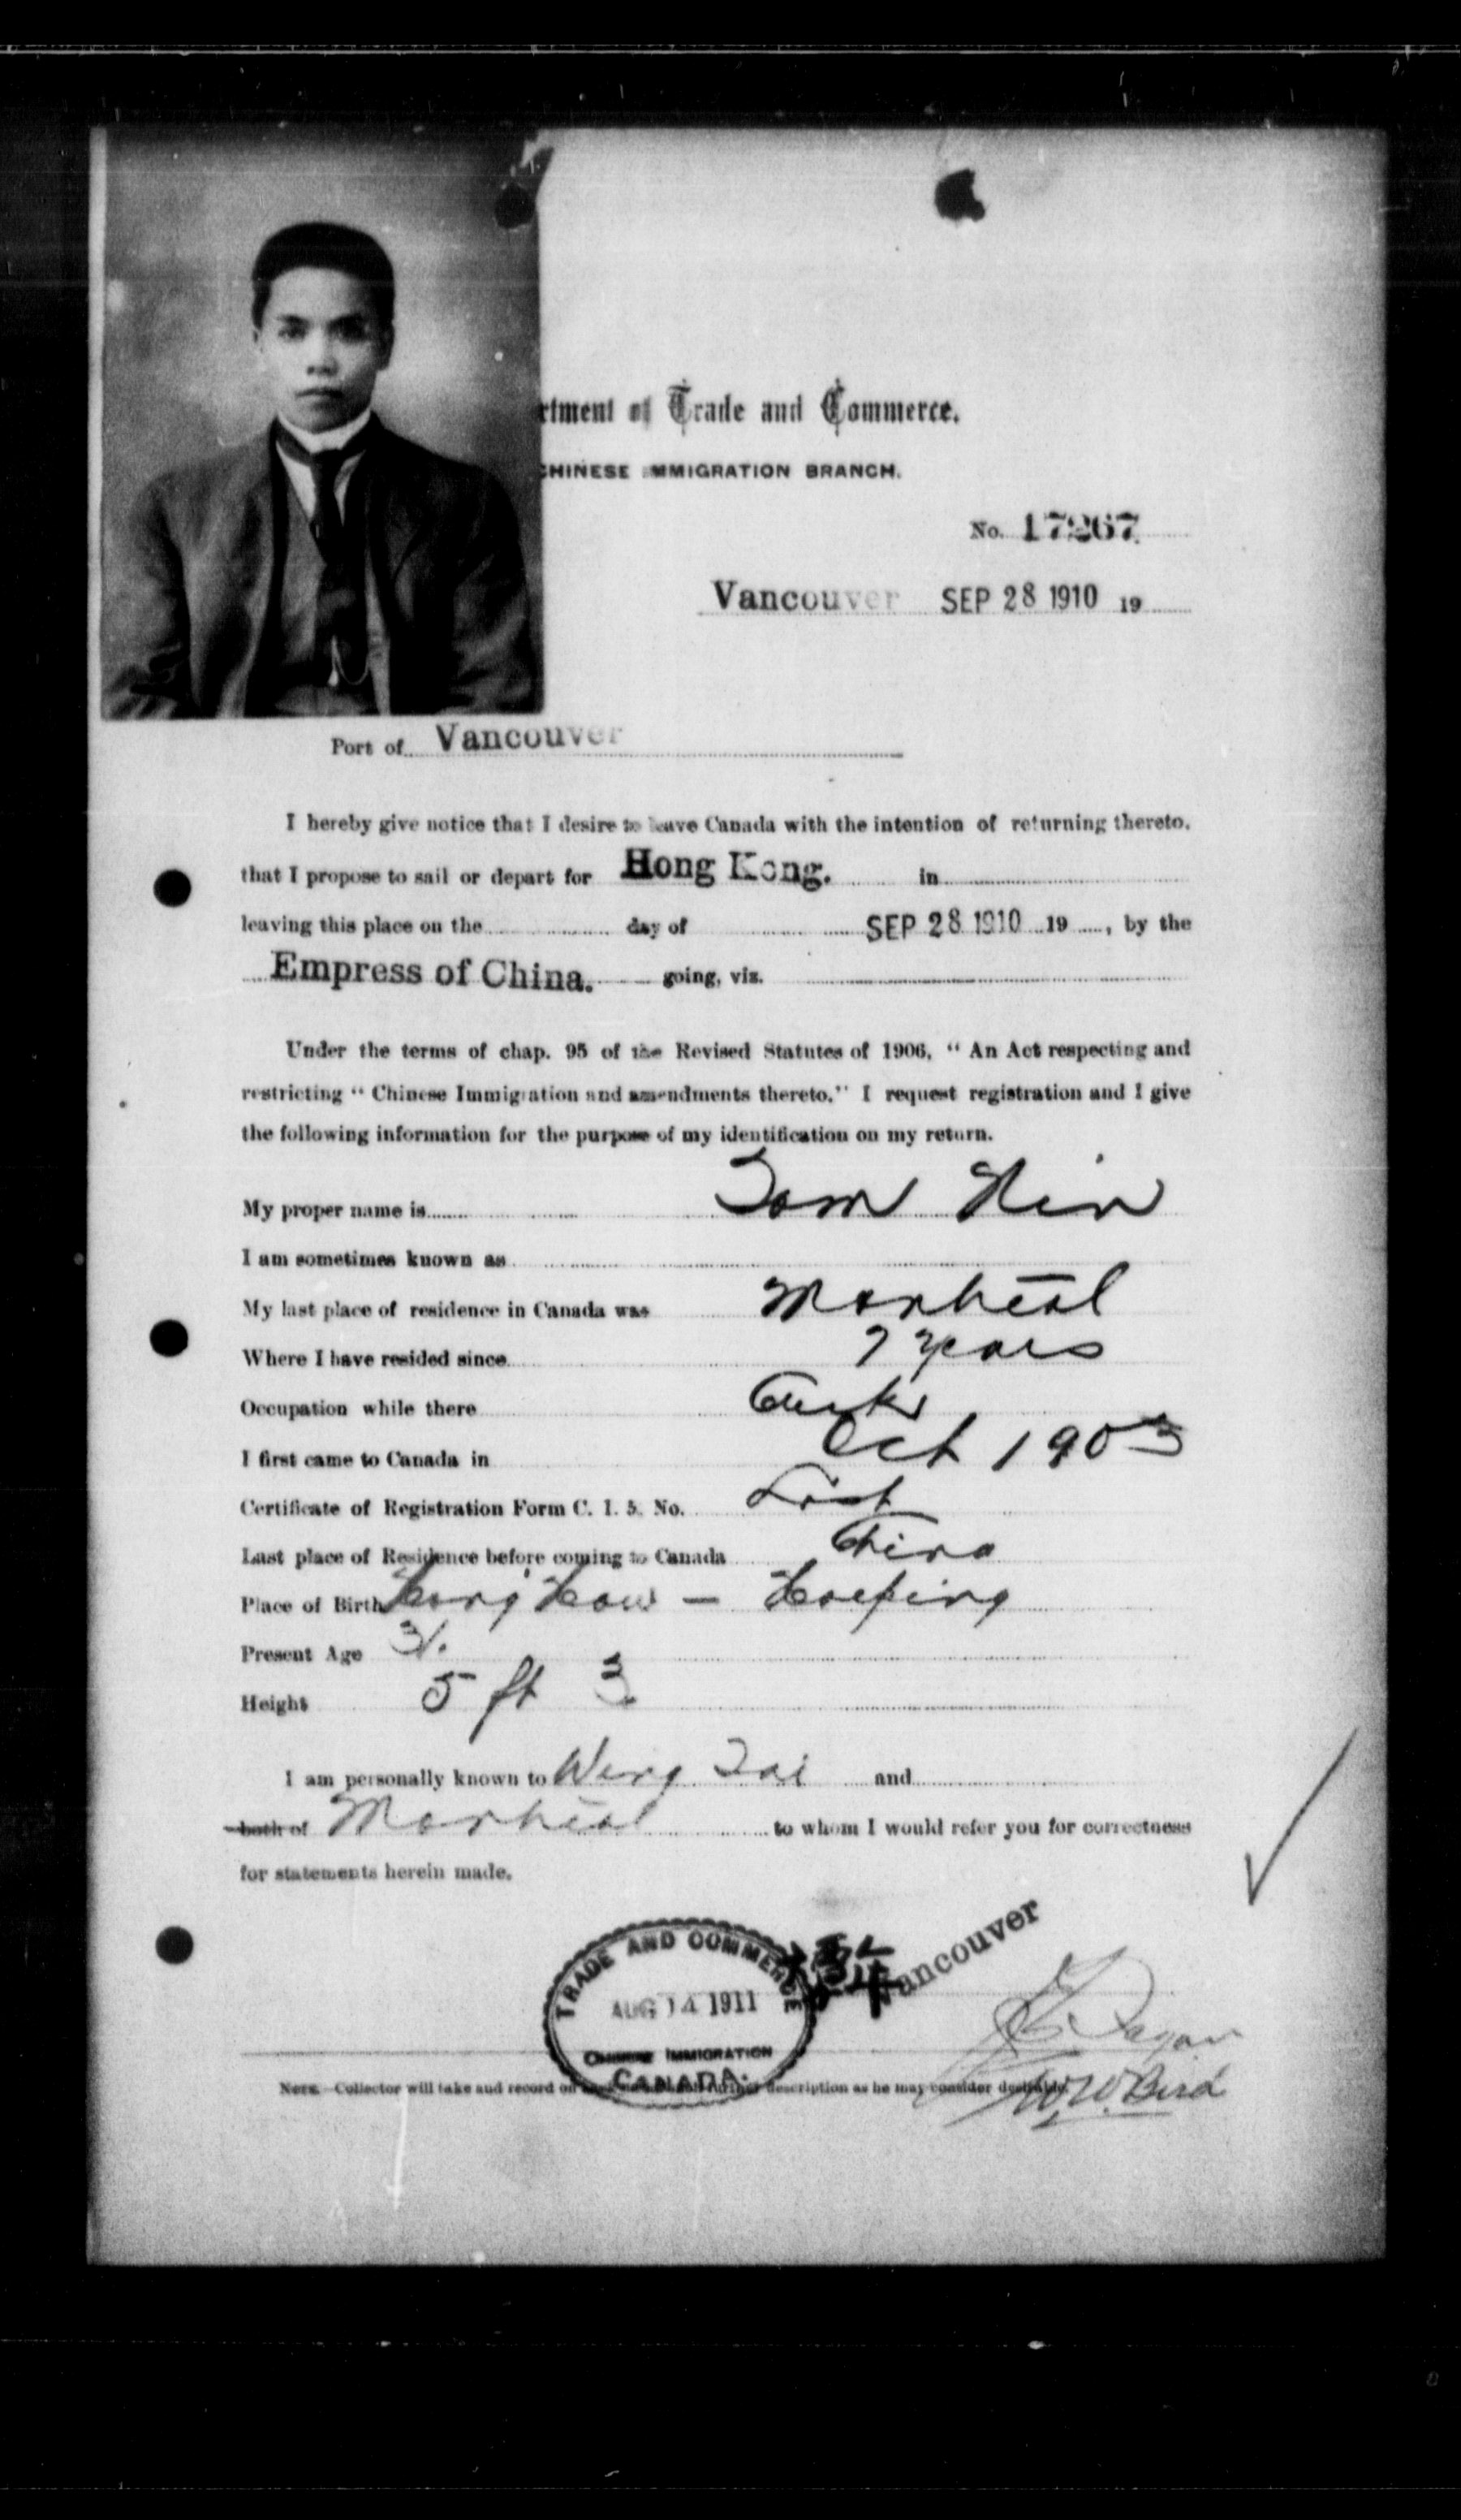 rtment of Trade and Commerce.
CHINESE IMMIGRATION BRANCH.
No. 17267
Vancouver SEP 28 1910 19
Port of Vancouver
I hereby give notice that I desire to leave Canada with the intention of returning thereto.
that I propose to sail or depart for Hong Kong. in
leaving this place on the day of SEP 28 1910 19 , by the
Empress of China. going, viz.
Under the terms of chap. 95 of the Revised Statutes of 1906, " An Act respecting and
restricting " Chinese Immigration and amendments thereto." I request registration and I give
the following information for the purpose of my identification on my return.
My proper name is Tom
I am sometimes known as
My last place of residence in Canada was Montreal
Where I have resided since 7 years
Occupation while there
I first came to Canada in Oct 1903
Certificate of Registration Form C. I. 5. No. Lost
Last place of Residence before coming to Canada China
Place of Birth - Hoeping
Present Age 31.
Height 5 ft 3
I am personally known to Wing Tai and
both of Montreal to whom I would refer you for correctness
for statements herein made.
Vancouver
TRADE AND COMMERCE
AUG 14 1911
CHINESE IMMIGRATION
CANADA.
W.W. Bird
NOTE.—Collector will take and record on further description as he may consider desirable.